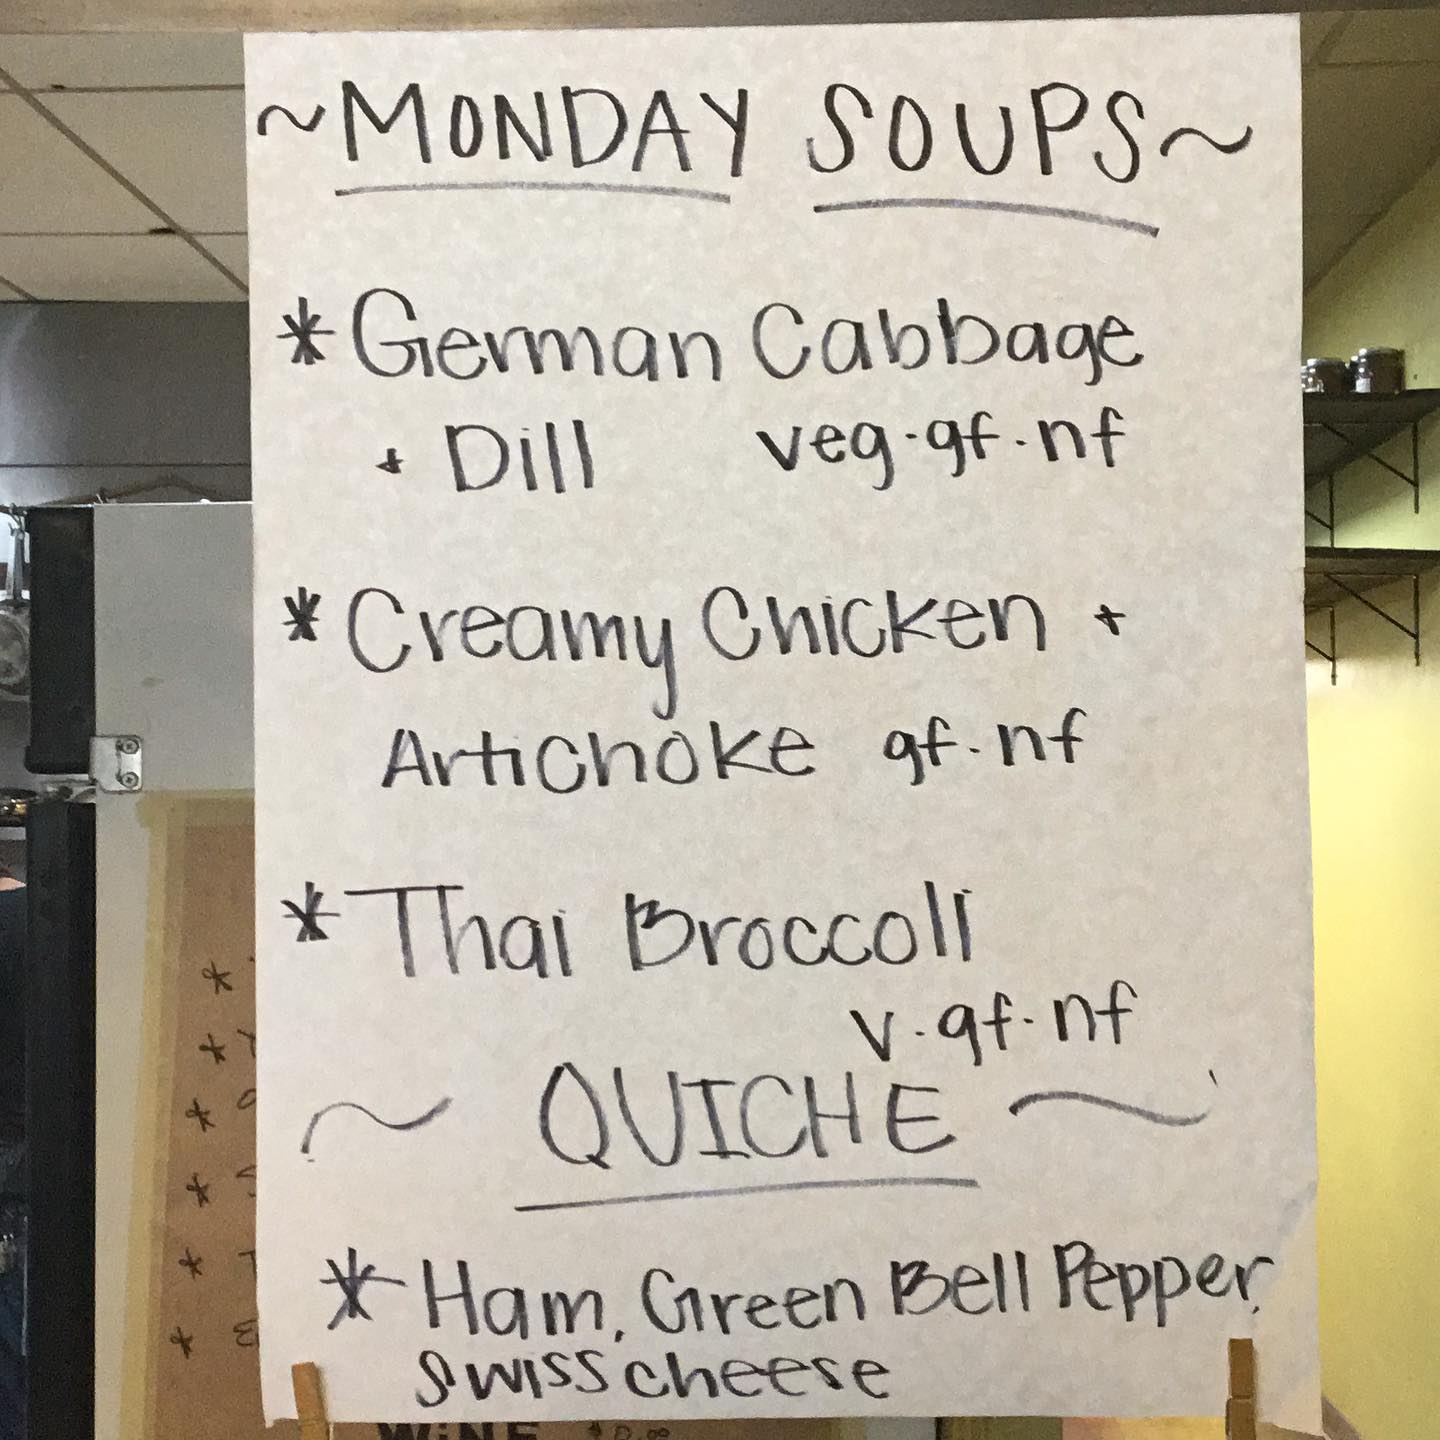 ~MONDAY SOUPS~
* German Cabbage
+ Dill veg·gf·nf
* Creamy Chicken +
Artichoke gf·nf
* Thai Broccoli
v·gf·nf
~ QUICHE ~
* Ham, Green Bell Pepper,
Swiss cheese
WINE